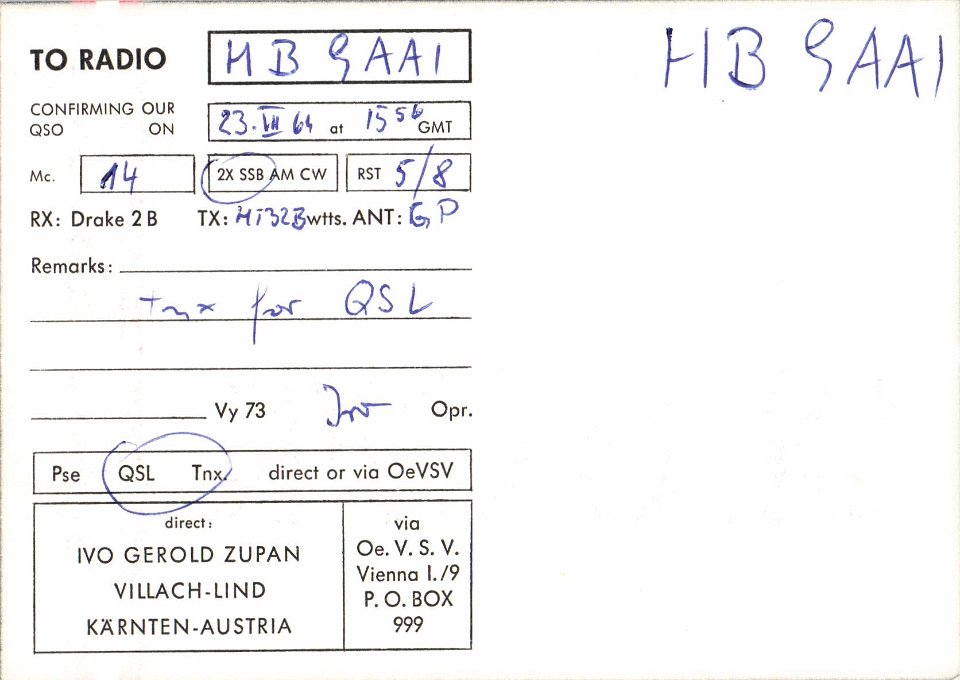 TO RADIO HB9AAI
HB9AAI
CONFIRMING OUR
QSO ON 23.VII 64 at 15 56 GMT
Mc. 14 2X SSB AM CW RST 5/8
RX: Drake 2 B TX: HT32B wtts. ANT: GP
Remarks:
Tnx for QSL
Vy 73 Ivo Opr.
Pse QSL Tnx. direct or via OeVSV
direct:
IVO GEROLD ZUPAN
VILLACH-LIND
KÄRNTEN-AUSTRIA
via
Oe. V. S. V.
Vienna I./9
P. O. BOX
999